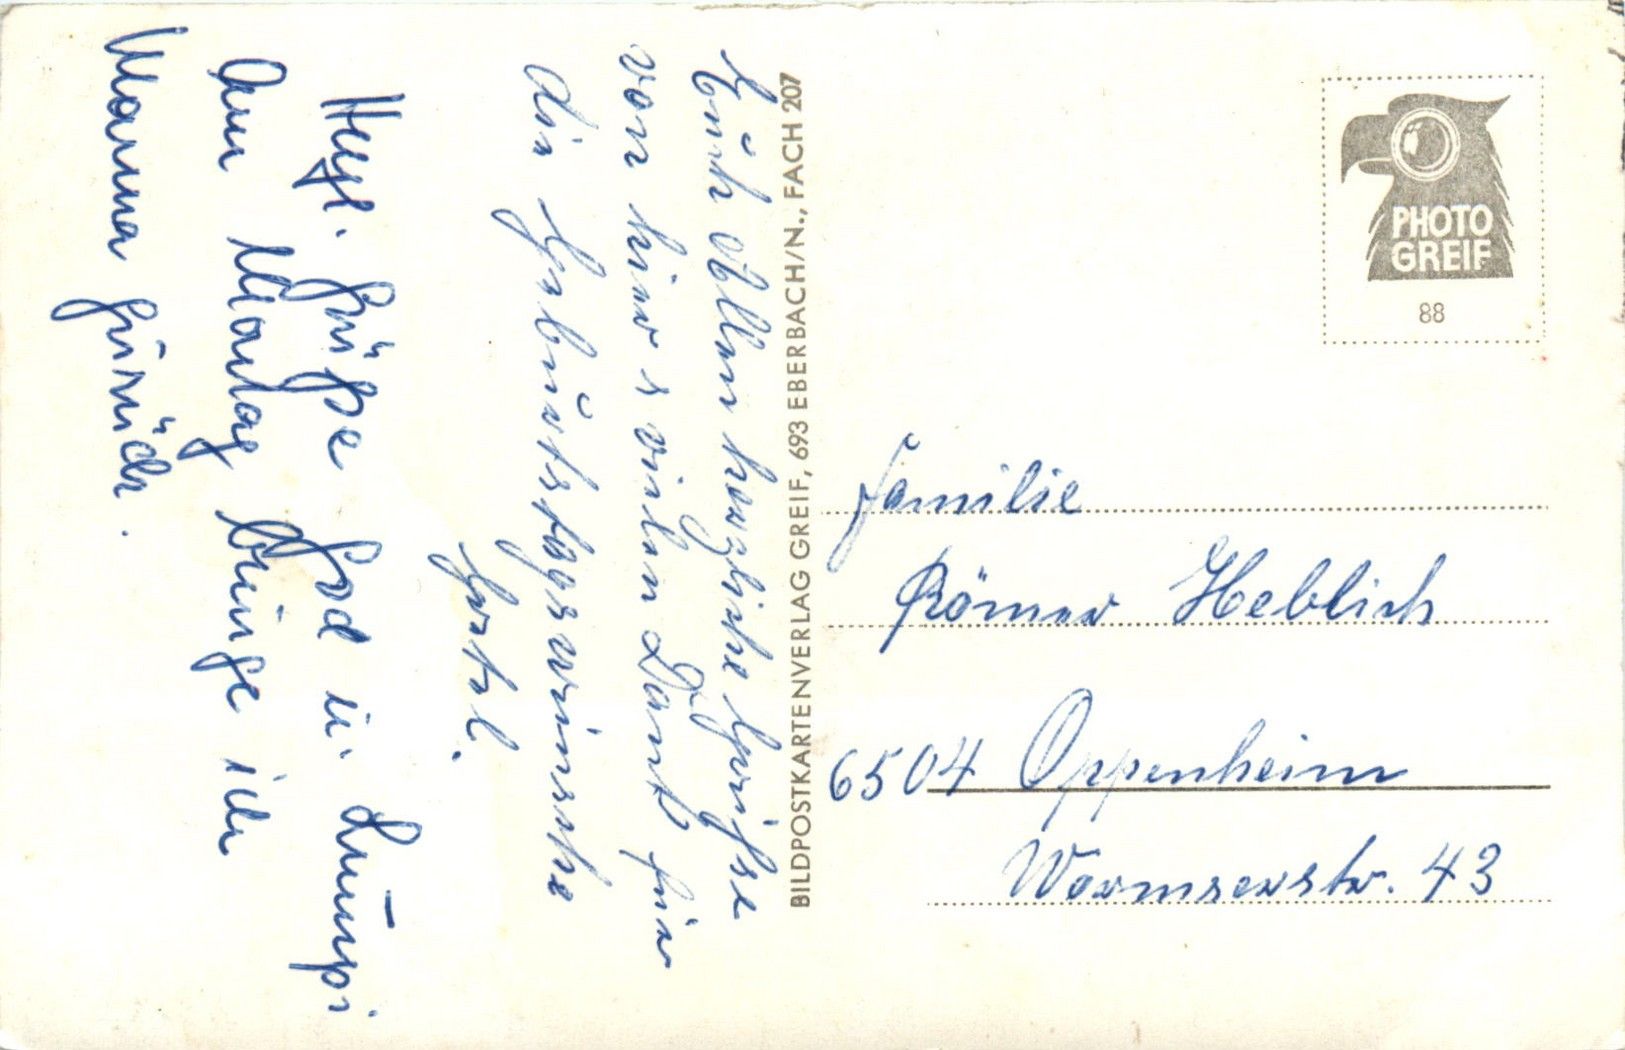 Euch Allen herzliche Grüße
von hier s vielen Dank für
die Geburtstagswünsche
Gretel.
Herzl. Grüße God u. Lumpi
Am Montag bringe ich
Mama zurück.
BILDPOSTKARTENVERLAG GREIF, 693 EBERBACH/N., FACH 207
PHOTO
GREIF
88
Familie
Römer Heblich
6504 Oppenheim
Wormserstr. 43